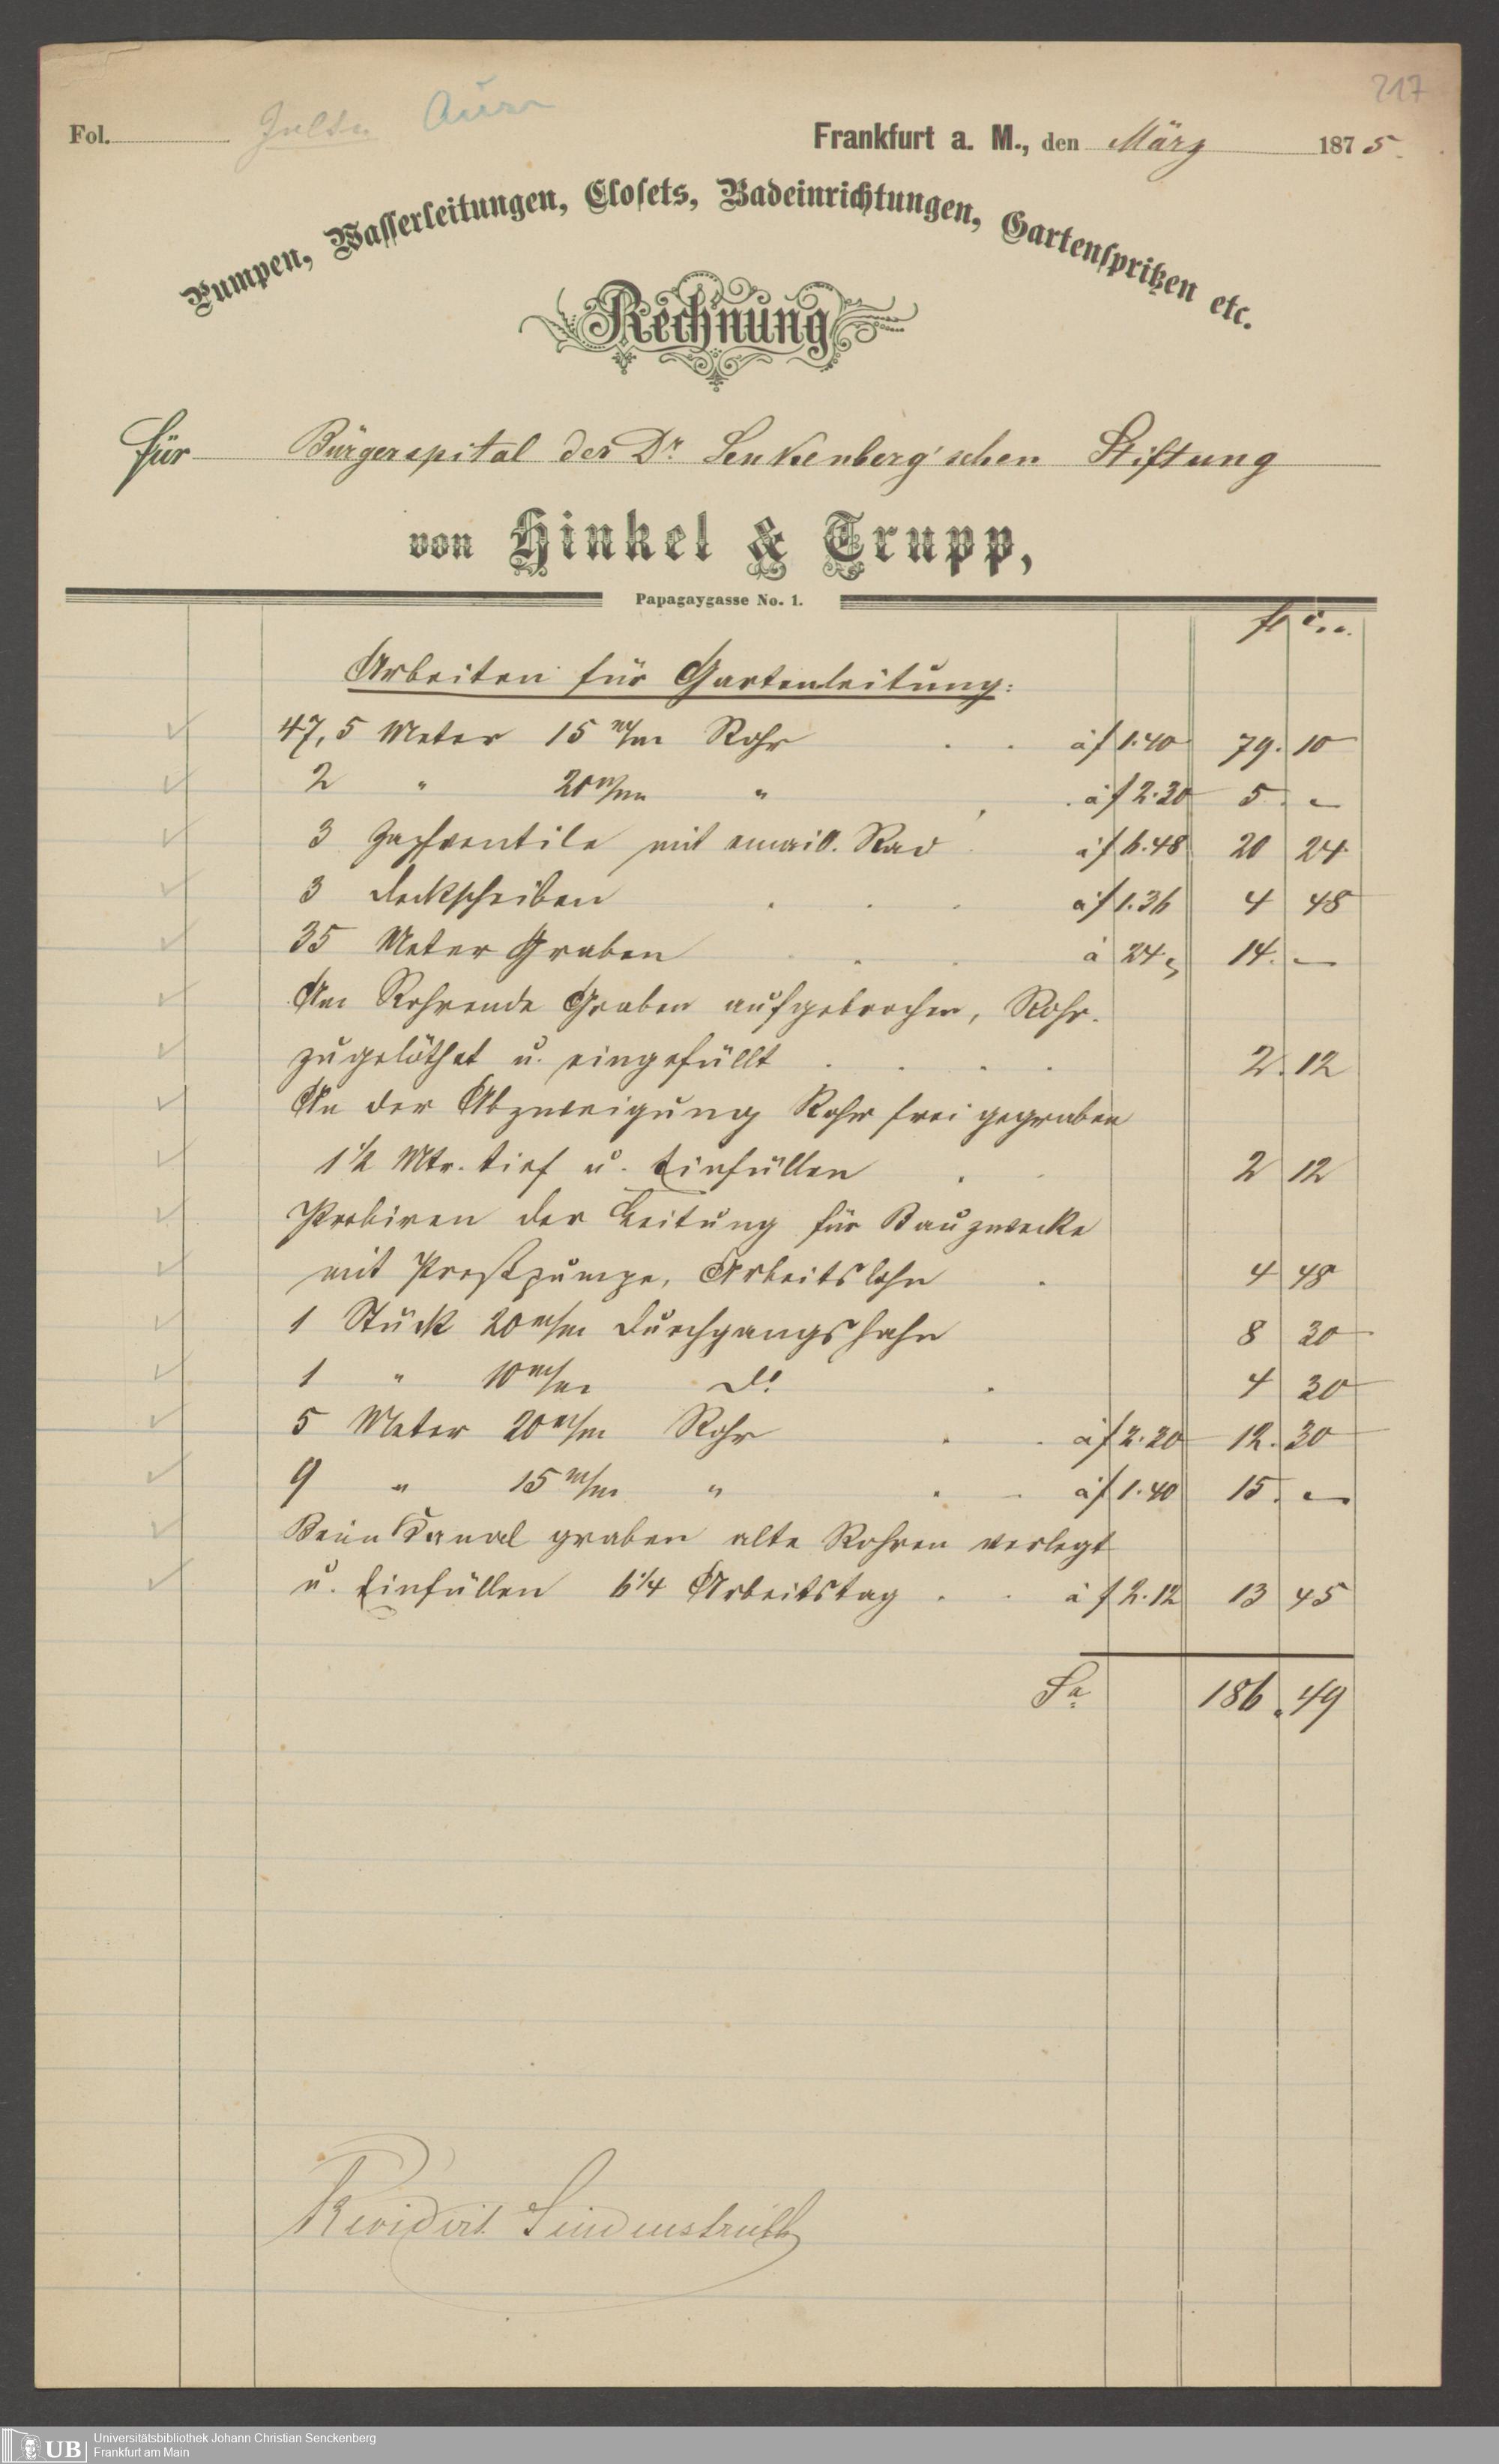 217
Fol.
Frankfurt a. M., den März 1875.
Pumpen, Wasserleitungen, Closets, Badeinrichtungen, Gartenspritzen etc.
Rechnung
für Bürgerspital der Dr. Senkenberg'schen Stiftung
von Hinkel & Trupp,
Papagaygasse No. 1.
Arbeiten für Gartenleitung:
47,5 Meter 15 m/m Rohr . . à f 1.40 79. 10
2 " 20 m/m " . . à f 2.30 5. –
3 Zapfventile mit emaill. Rad . à f 6.48 20 24
3 Deckscheiben . . . à f 1.36 4 48
35 Meter Graben . . . à 24 14. –
Am Rohrende Graben aufgebrochen, Rohr
zugelöthet u. eingefüllt . . . . 2. 12
An der Abzweigung Rohr frei gegraben
1½ Mtr. tief u. Einfüllen . . 2 12
Probiren der Leitung für Bauzwecke
mit Preßpumpe, Arbeitslohn . 4 48
1 Stück 20 m/m Durchgangshahn 8 30
1 " 10 m/m do . 4 30
5 Meter 20 m/m Rohr . . à f 2.30 12. 30
9 " 15 m/m " . . à f 1.40 15. –
Beim Kanal graben alte Rohren verlegt
u. Einfüllen 6¼ Arbeitstag . . à f 2.12 13 45
Sa. 186. 49
Revidirt Lindenstruth
UB
Universitätsbibliothek Johann Christian Senckenberg
Frankfurt am Main